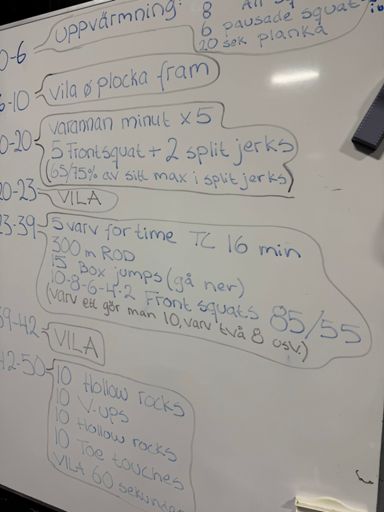 0-6 uppvärmning: 8
6 pausade squat
20 sek planka
6-10 vila & plocka fram
0-20 varannan minut x5
5 Frontsquat + 2 split jerks
(65/75% av sitt max i split jerks)
20-23 VILA
23-39 5 varv for time TC 16 min
300 m ROD
15 Box jumps (gå ner)
10-8-6-4-2 Front squats 85/55
(varv ett gör man 10, varv två 8 osv.)
39-42 VILA
42-50 10 Hollow rocks
10 V-ups
10 Hollow rocks
10 Toe touches
VILA 60 sekunder